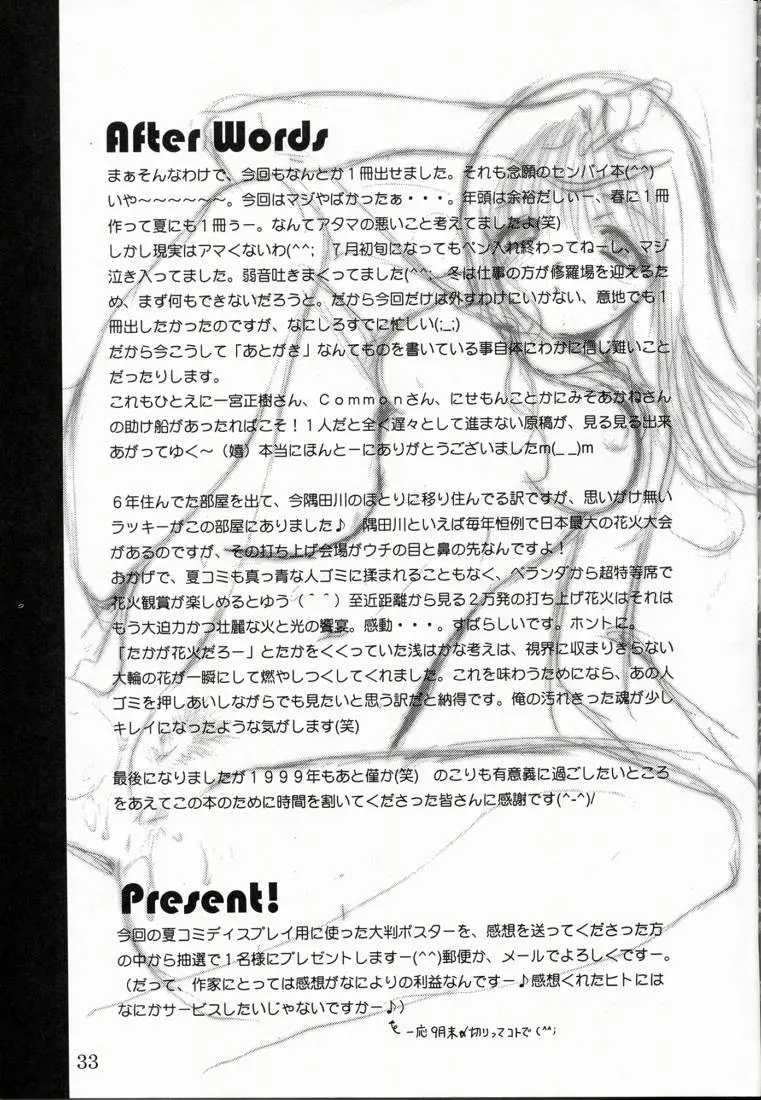 After Words
まぁそんなわけで、今回もなんとか1冊出せました。それも念願のセンパイ本(^^)
いや～～～～～～。今回はマジやばかったぁ・・・。年頭は余裕だしぃー、春に1冊
作って夏にも1冊ぅー。なんてアタマの悪いこと考えてましたよ(笑)
しかし現実はアマくないわ(^^;　7月初旬になってもペン入れ終わってねーし、マジ
泣き入ってました。弱音吐きまくってました(^^;　冬は仕事の方が修羅場を迎えるた
め、まず何もできないだろうと。だから今回だけは外すわけにいかない、意地でも1
冊出したかったのですが、なにしろすでに忙しい(;_;)
だから今こうして「あとがき」なんてものを書いている事自体にわかに信じ難いこと
だったりします。
これもひとえに一宮正樹さん、Ｃｏｍｍｏｎさん、にせもんことかにみそあかねさん
の助け船があったればこそ！1人だと全く遅々として進まない原稿が、見る見る出来
あがってゆく～（嬉）本当にほんとーにありがとうございましたm(_ _)m
6年住んでた部屋を出て、今隅田川のほとりに移り住んでる訳ですが、思いがけ無い
ラッキーがこの部屋にありました♪　隅田川といえば毎年恒例で日本最大の花火大会
があるのですが、その打ち上げ会場がウチの目と鼻の先なんですよ！
おかげで、夏コミも真っ青な人ゴミに揉まれることもなく、ベランダから超特等席で
花火観賞が楽しめるとゆう（＾＾）至近距離から見る2万発の打ち上げ花火はそれは
もう大迫力かつ壮麗な火と光の饗宴。感動・・・。すばらしいです。ホントに。
「たかが花火だろー」とたかをくくっていた浅はかな考えは、視界に収まりきらない
大輪の花が一瞬にして燃やしつくしてくれました。これを味わうためになら、あの人
ゴミを押しあいしながらでも見たいと思う訳だと納得です。俺の汚れきった魂が少し
キレイになったような気がします(笑)
最後になりましたが1999年もあと僅か(笑)　のこりも有意義に過ごしたいところ
をあえてこの本のために時間を割いてくださった皆さんに感謝です(^-^)/
Present!
今回の夏コミディスプレイ用に使った大判ポスターを、感想を送ってくださった方
の中から抽選で1名様にプレゼントしますー(^^)郵便か、メールでよろしくですー。
（だって、作家にとっては感想がなによりの利益なんですー♪感想くれたヒトには
なにかサービスしたいじゃないですかー♪）
一応9月末〆切りってコトで(^^;
33